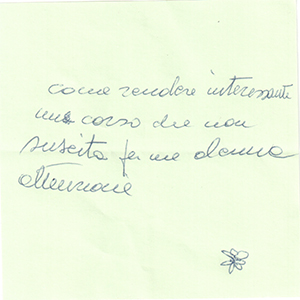 come rendere interessante
un corso che non
suscita per me alcuna
attenzione